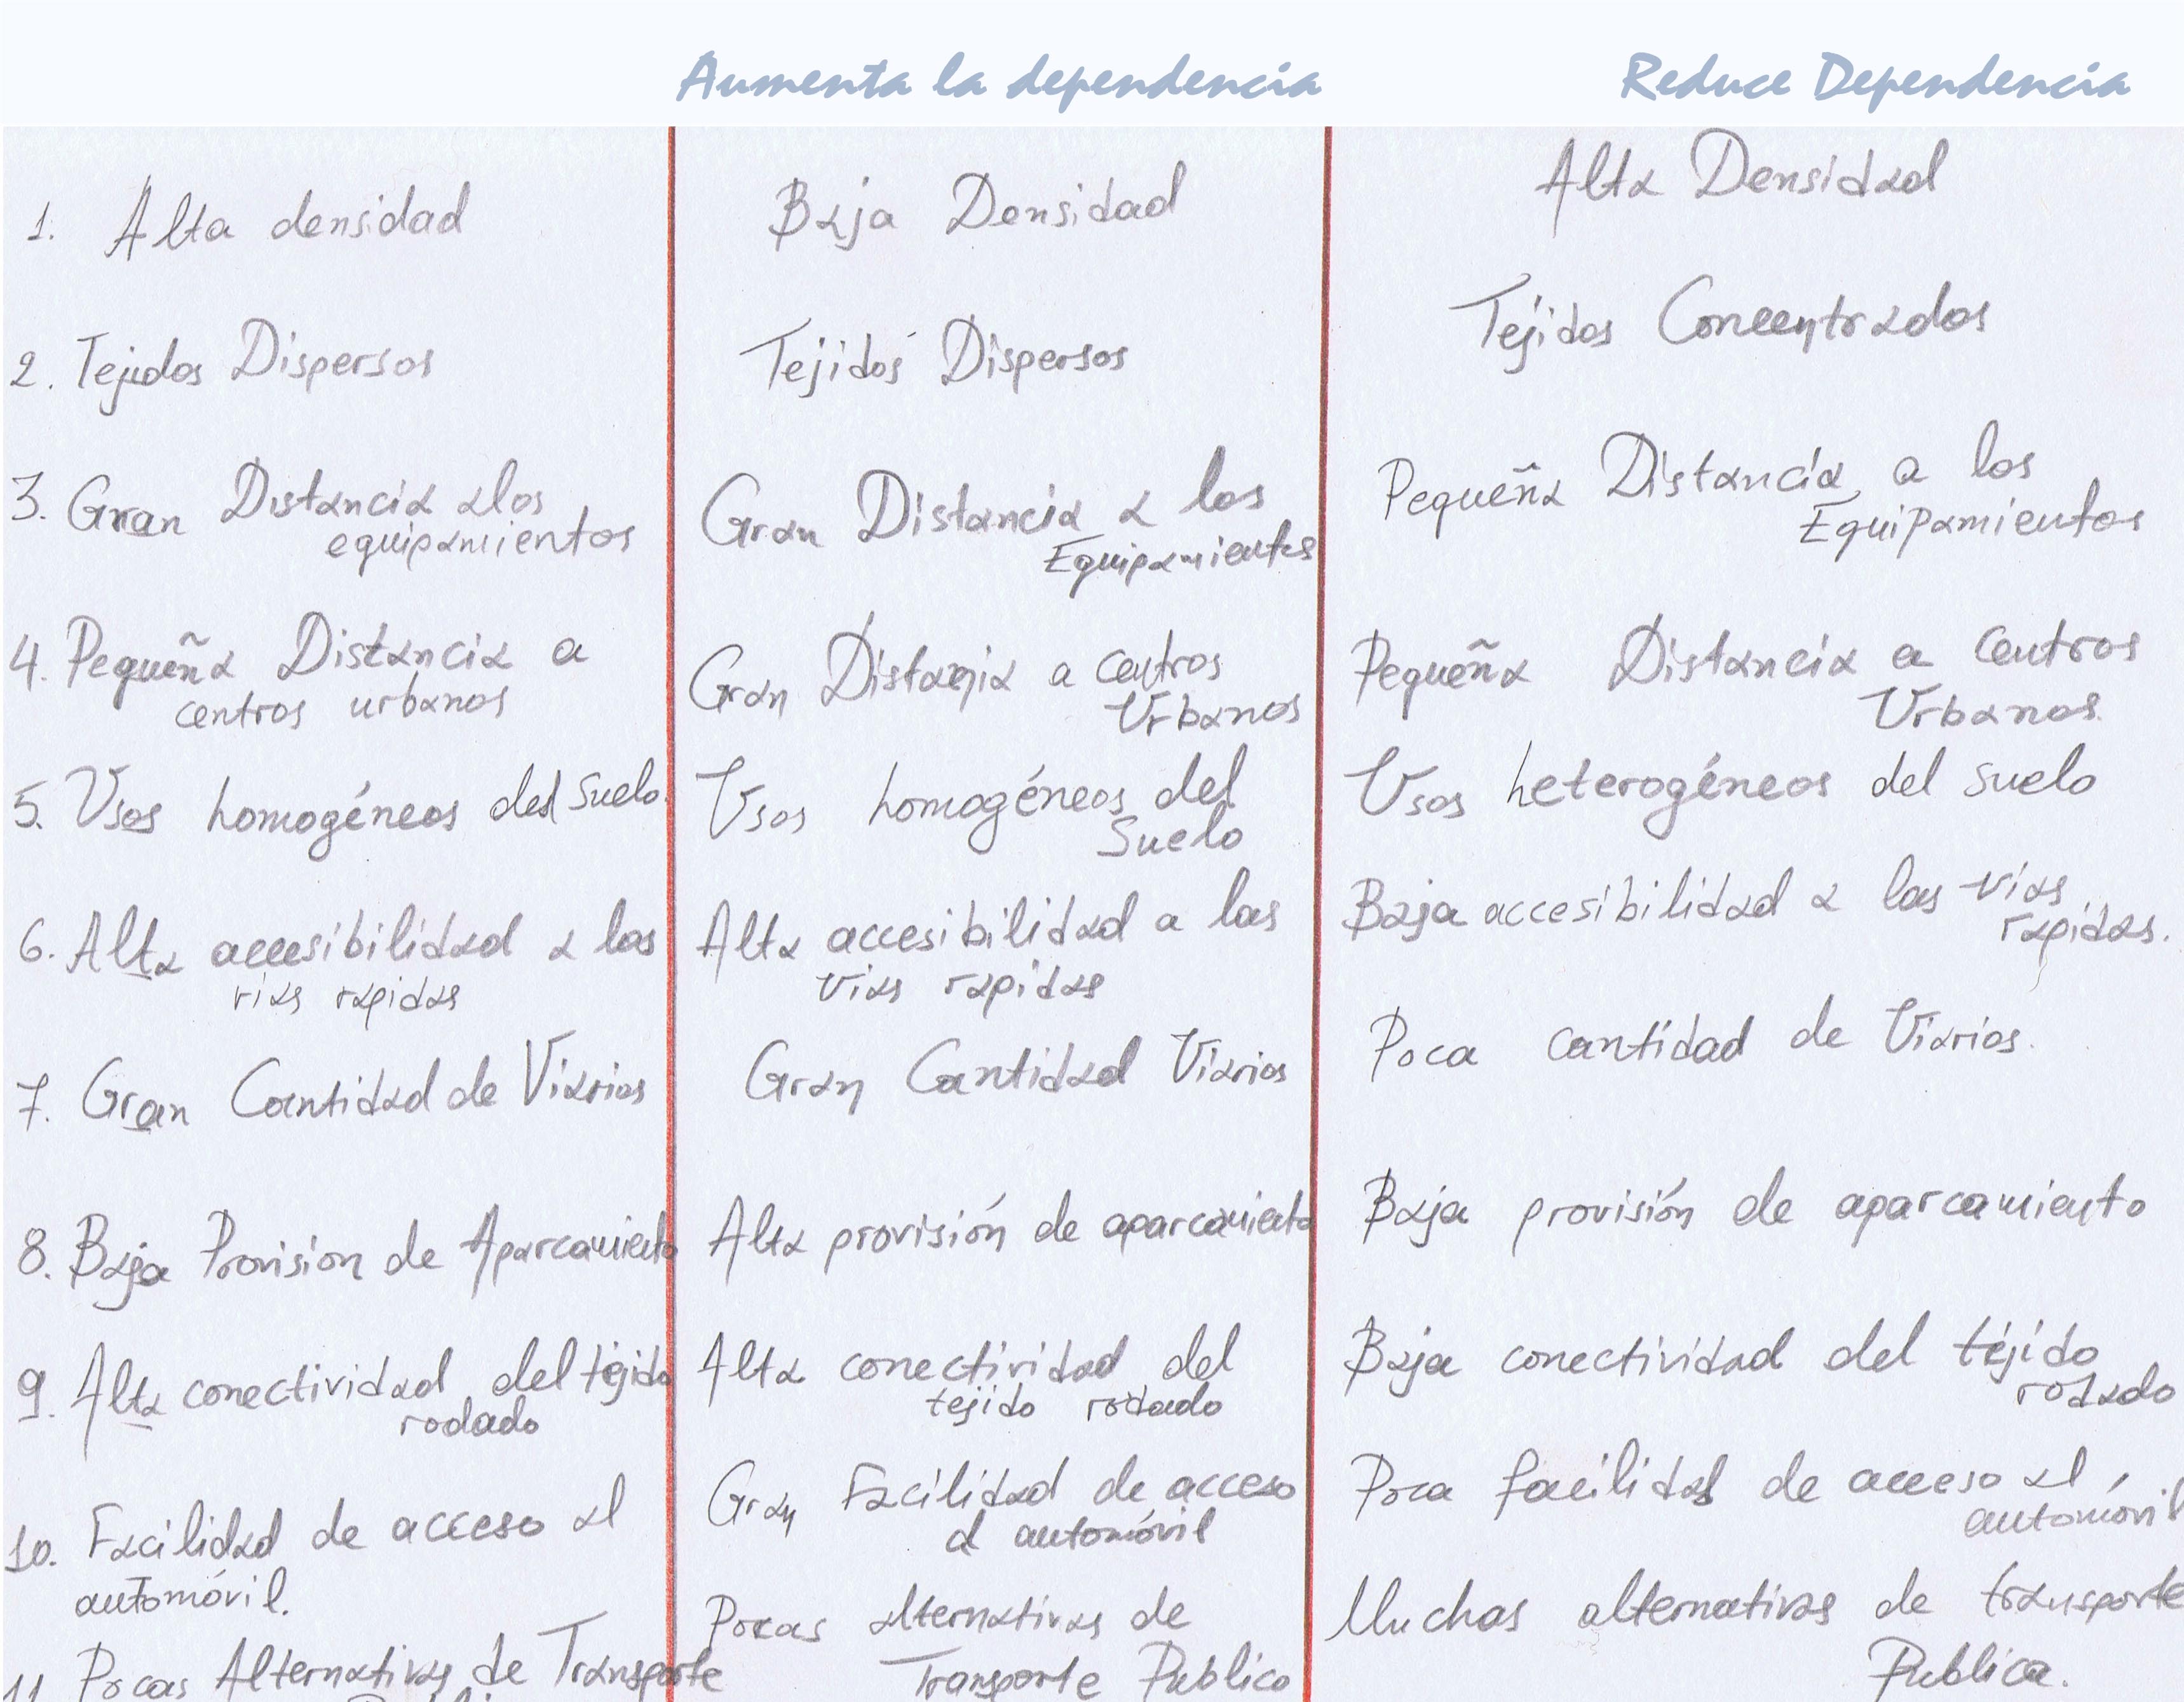 Aumenta la dependencia
Reduce Dependencia
1. Alta densidad
Baja Densidad
Alta Densidad
2. Tejidos Dispersos
Tejidos Dispersos
Tejidos Concentrados
3. Gran Distancia a los
equipamientos
Gran Distancia a los
Equipamientos
Pequeña Distancia a los
Equipamientos
4. Pequeña Distancia a
centros urbanos
Gran Distancia a centros
Urbanos
Pequeña Distancia a centros
Urbanos.
5. Usos homogéneos del suelo.
Usos homogéneos del
Suelo
Usos heterogéneos del suelo
6. Alta accesibilidad a las
vias rapidas
Alta accesibilidad a las
vias rapidas
Baja accesibilidad a las vias
rapidas.
7. Gran Cantidad de Viarios
Gran Cantidad Viarios
Poca cantidad de Viarios.
8. Baja Provision de Aparcamiento
Alta provisión de aparcamiento
Baja provisión de aparcamiento
9. Alta conectividad del tejido
rodado
Alta conectividad del
tejido rodado
Baja conectividad del tejido
rodado
10. Facilidad de acceso al
automóvil.
Gran Facilidad de acceso
al automóvil
Poca facilidad de acceso al
automóvil
11. Pocas Alternativas de Transporte
Pocas alternativas de
Transporte Publico
Muchas alternativas de transporte
Publica.